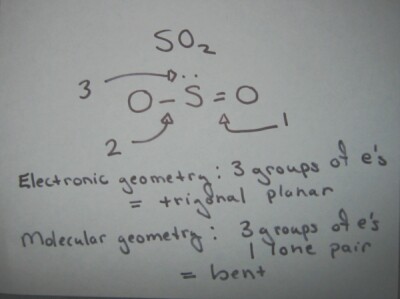 SO₂
3
O – S̈ = O
2
1
Electronic geometry: 3 groups of e's
= trigonal planar
Molecular geometry: 3 groups of e's
1 lone pair
= bent